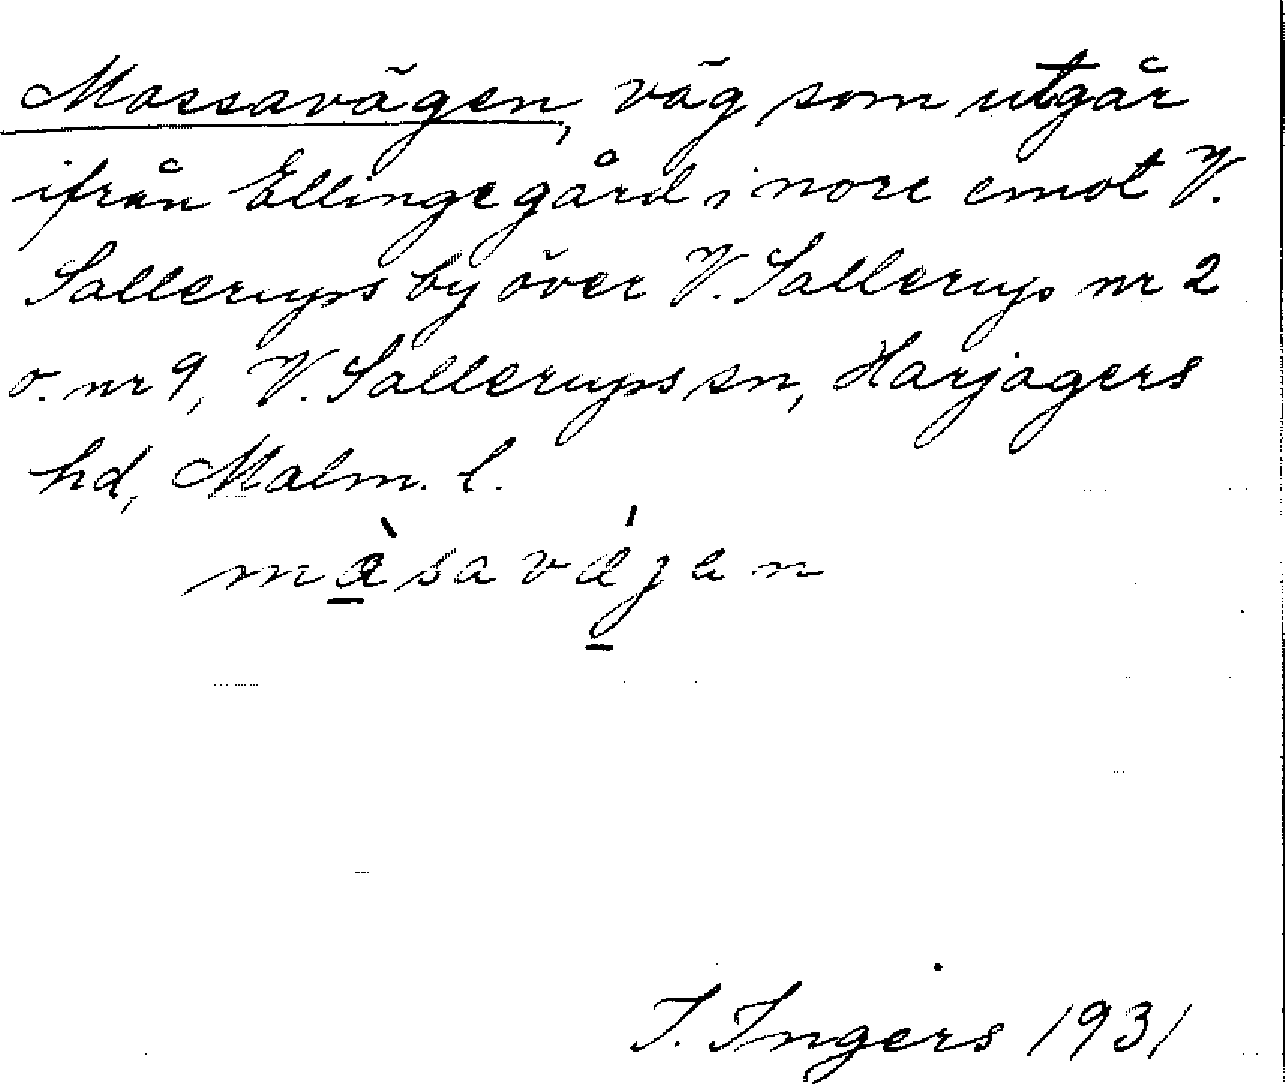 Mossavägen, väg som utgår
ifrån Ellinge gård i norr emot V.
Sallerups by över V. Sallerup nr 2
o. nr 9, V. Sallerups sn, Harjagers
hd, Malm. l.
I. Ingers 1931